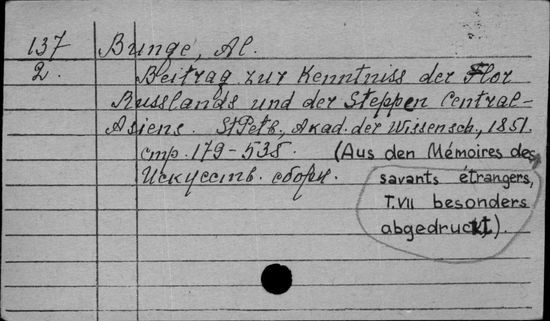 137 Bunge, Al.
2. Beitrag zur Kenntniss der Flor
Russlands und der Steppen Central-
Asiens. StPetb., Akad. der Wissensch., 1851.
стр. 179-535. (Aus den Mémoires des
Искусств. сборн. savants étrangers,
T.VII besonders
abgedruckt).